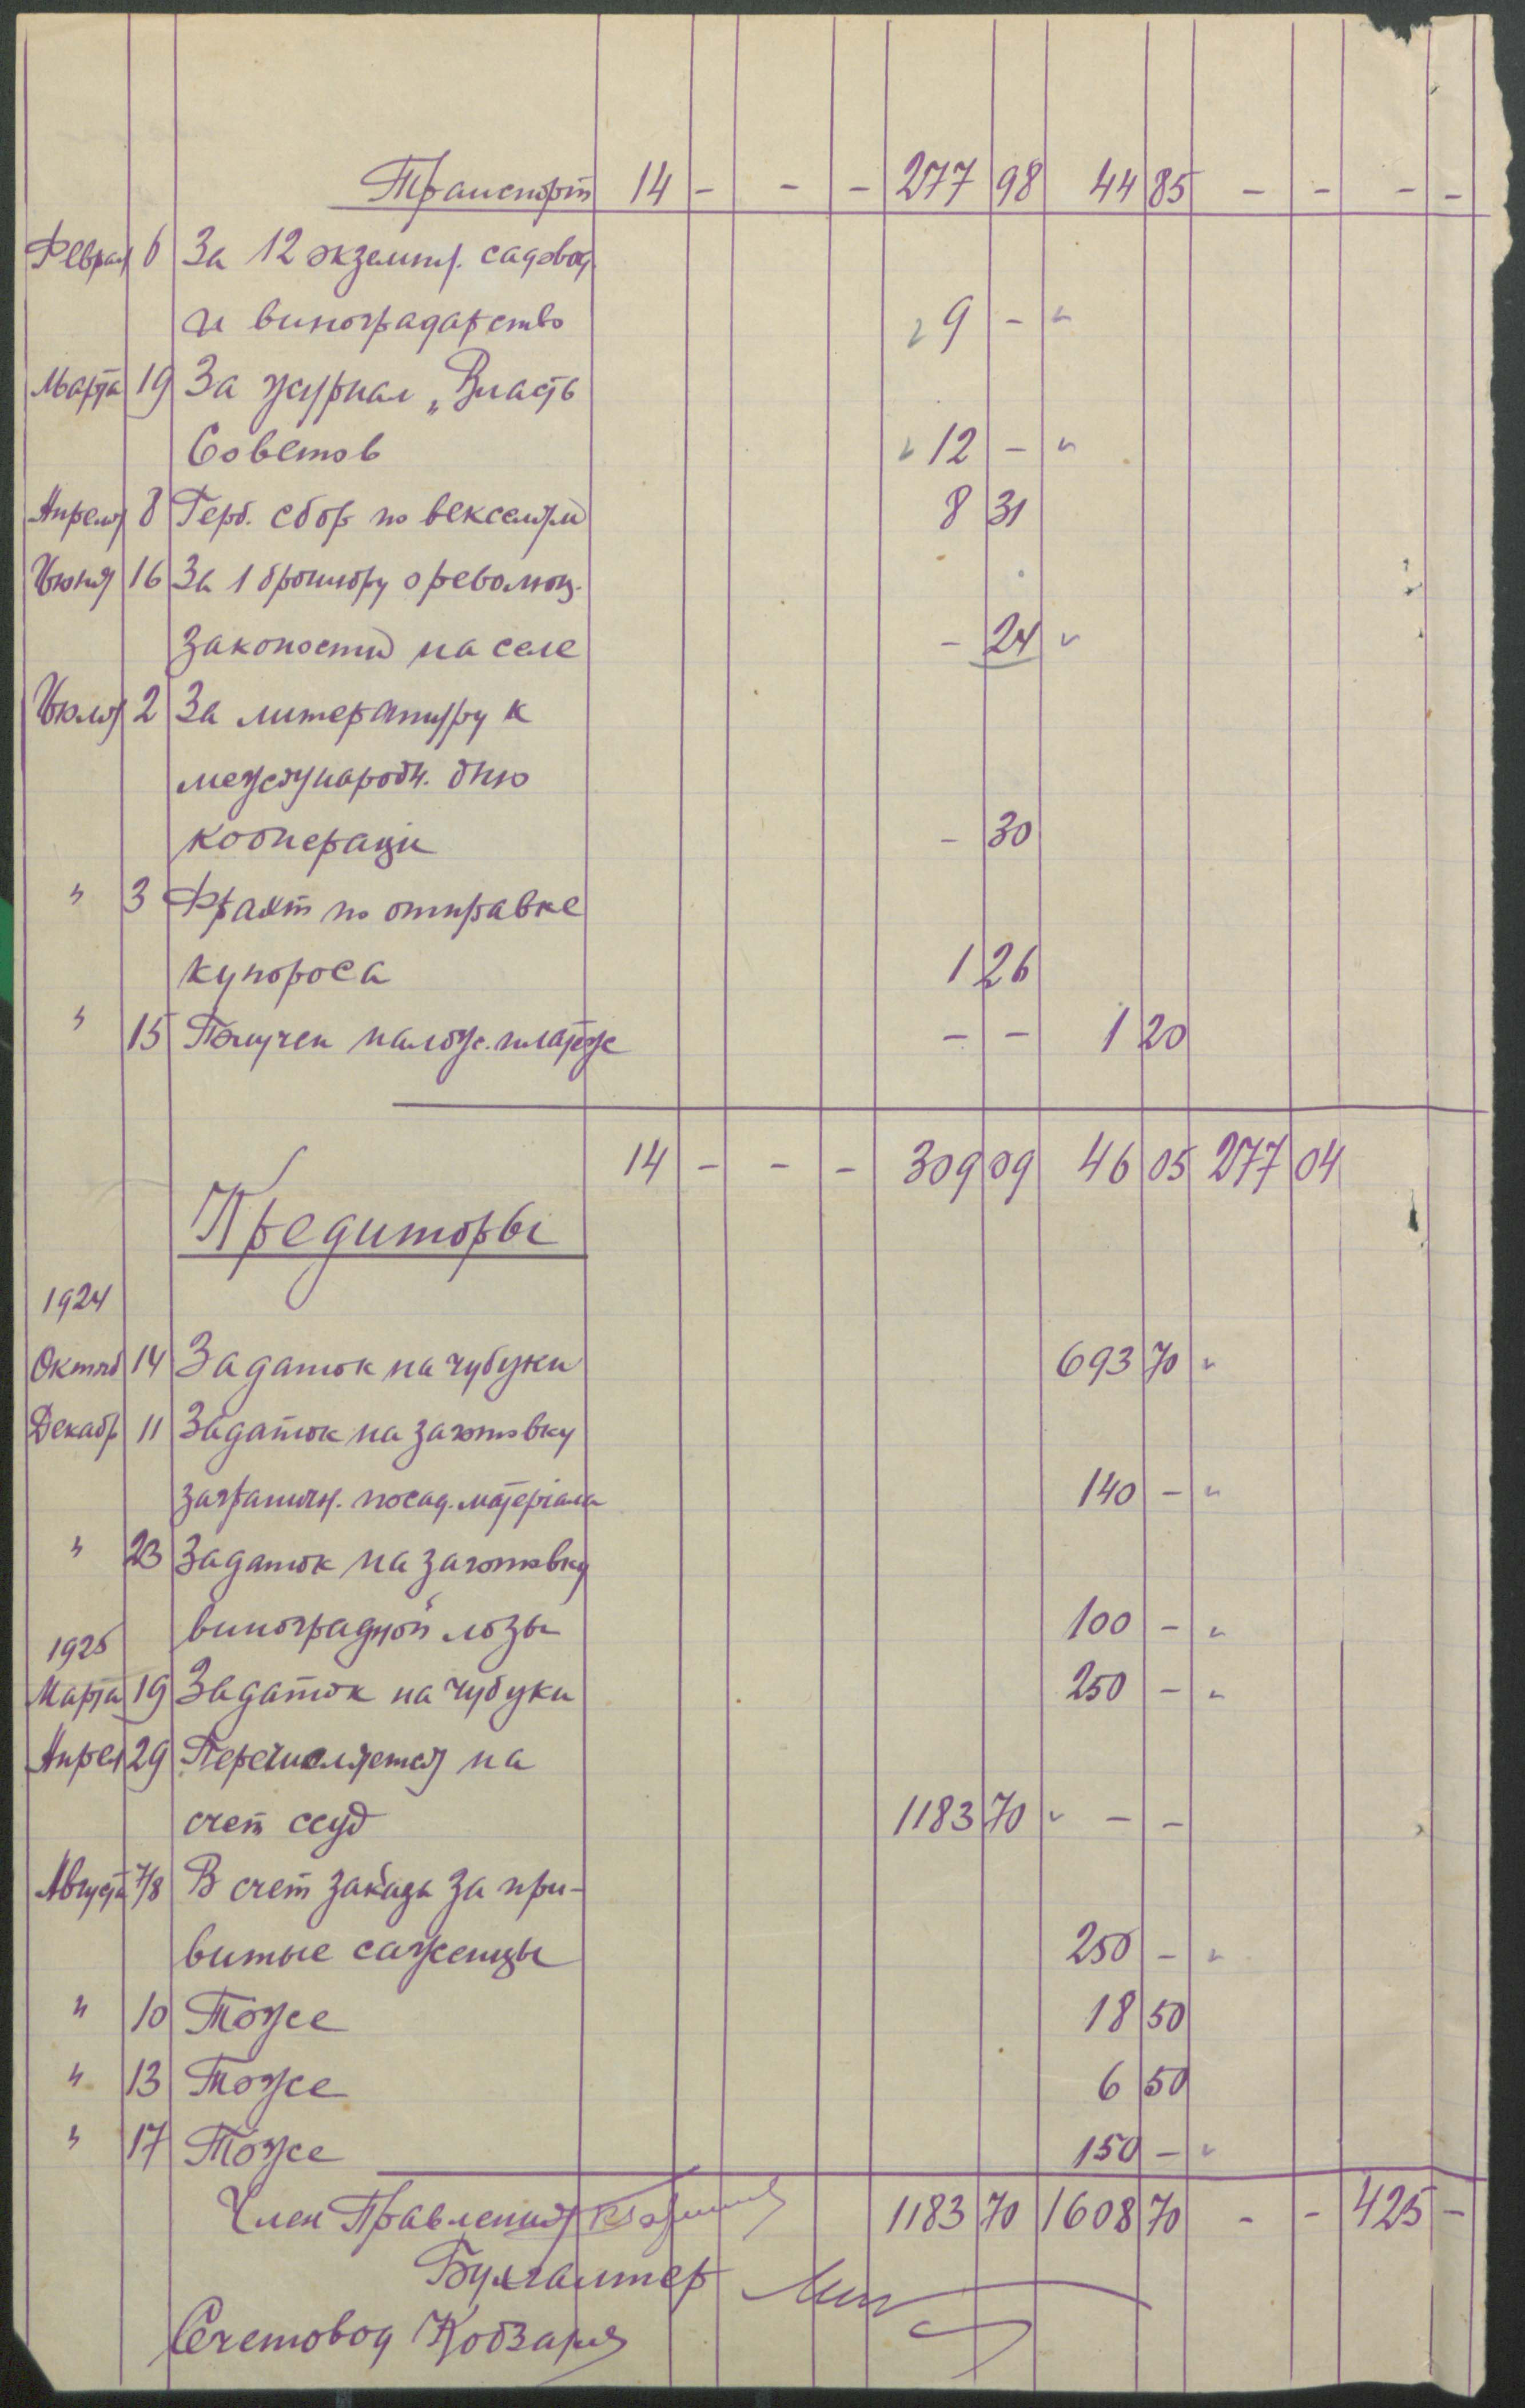 Транспорт 14 - - - 277 98 44 85 - - - -
Феврал 6 За 12 экземпл. садовод.
и виноградарство 9 -
Марта 19 За журнал „Власть
Советов 12 -
Апреля 8 Герб. сбор по векселям 8 31
Июня 16 За 1 брошюру о революц.
законости на селе - 24
Июля 2 За литературу к
международн. дню
коопераціи - 30
" 3 Фрахт по отправке
купороса 1 26
" 15 Получен налож. платеж - - 1 20
14 - - - 309 09 46 05 277 04
Кредиторы
1924
Октяб 14 Задаток на чубуки 693 70
Декабр 11 Задаток на заготовку
заграничн. посад. матеріала 140 -
" 23 Задаток на заготовку
виноградной лозы 100 -
1925
Марта 19 Задаток на чубуки 250 -
Апрел 29 Перечисляется на
счет ссуд 1183 70 - -
Августа 7/8 В счет заказа за при-
витые саженцы 250 -
" 10 Тоже 18 50
" 13 Тоже 6 50
" 17 Тоже 150 -
Член Правления 1183 70 1608 70 - - 425 -
Бухгалтер
Счетовод Кобзарь